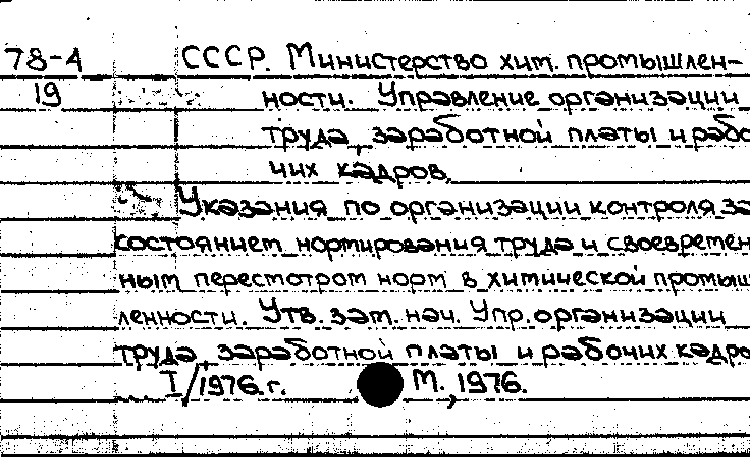 78-4 СССР. Министерство хим. промышлен-
19 ности. Управление организации
труда, заработной платы и рабо
чих кадров.
Указания по организации контроля за
состоянием нормирования труда и своевремен
ным пересмотром норм в химической промыш
ленности. Утв. зам. нач. Упр. организации
труда, заработной платы и рабочих кадро
I/1976.г. М., 1976.